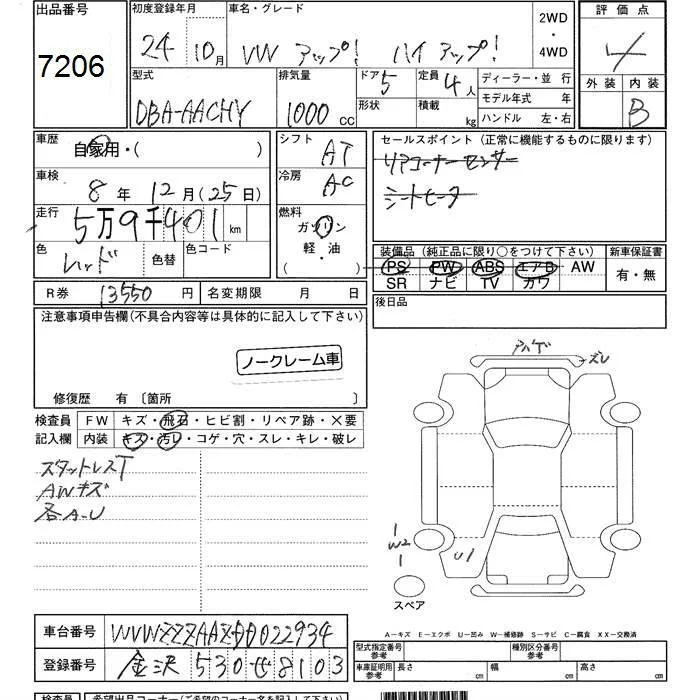 出品番号
7206
初度登録年月
24年10月
車名・グレード
VW アップ! ハイアップ!
2WD
・
4WD
評価点
4
外装 内装
B
型式
DBA-AACHY
排気量
1000 cc
ドア 5
形状
定員 4人
積載 kg
ディーラー・並行
モデル年式 年
ハンドル 左・右
車歴
自家用・( )
車検
8年12月(25日)
走行
5万9千401 km
色
レッド
色替
色コード
シフト
AT
冷房
AC
燃料
ガソリン
軽・油
( )
セールスポイント(正常に機能するものに限ります)
リアコーナーセンサー
シートヒータ
装備品(純正品に限り○をつけて下さい)
PS PW ABS エアB AW
SR ナビ TV カワ
新車保証書
有・無
R券 13550 円
名変期限 月 日
後日品
注意事項申告欄(不具合内容等は具体的に記入して下さい)
ノークレーム車
修復歴 有〔箇所 〕
検査員
記入欄
FW キズ・飛石・ヒビ割・リペア跡・×要
内装 キズ・汚レ・コゲ・穴・スレ・キレ・破レ
スタットレスT
AWキズ
各A-U
アハゲ
ズレ
W2
U1
スペア
A-キズ E-エクボ U-凹み W-補修跡 S-サビ C-腐食 XX-交換済
車台番号 WVWZZZAAZDD022934
登録番号 金沢 530 せ 8103
型式指定番号
参考
種別区分番号
参考
車庫証明用
参考
長さ cm
幅 cm
高さ cm
検査員
希望出品コーナー